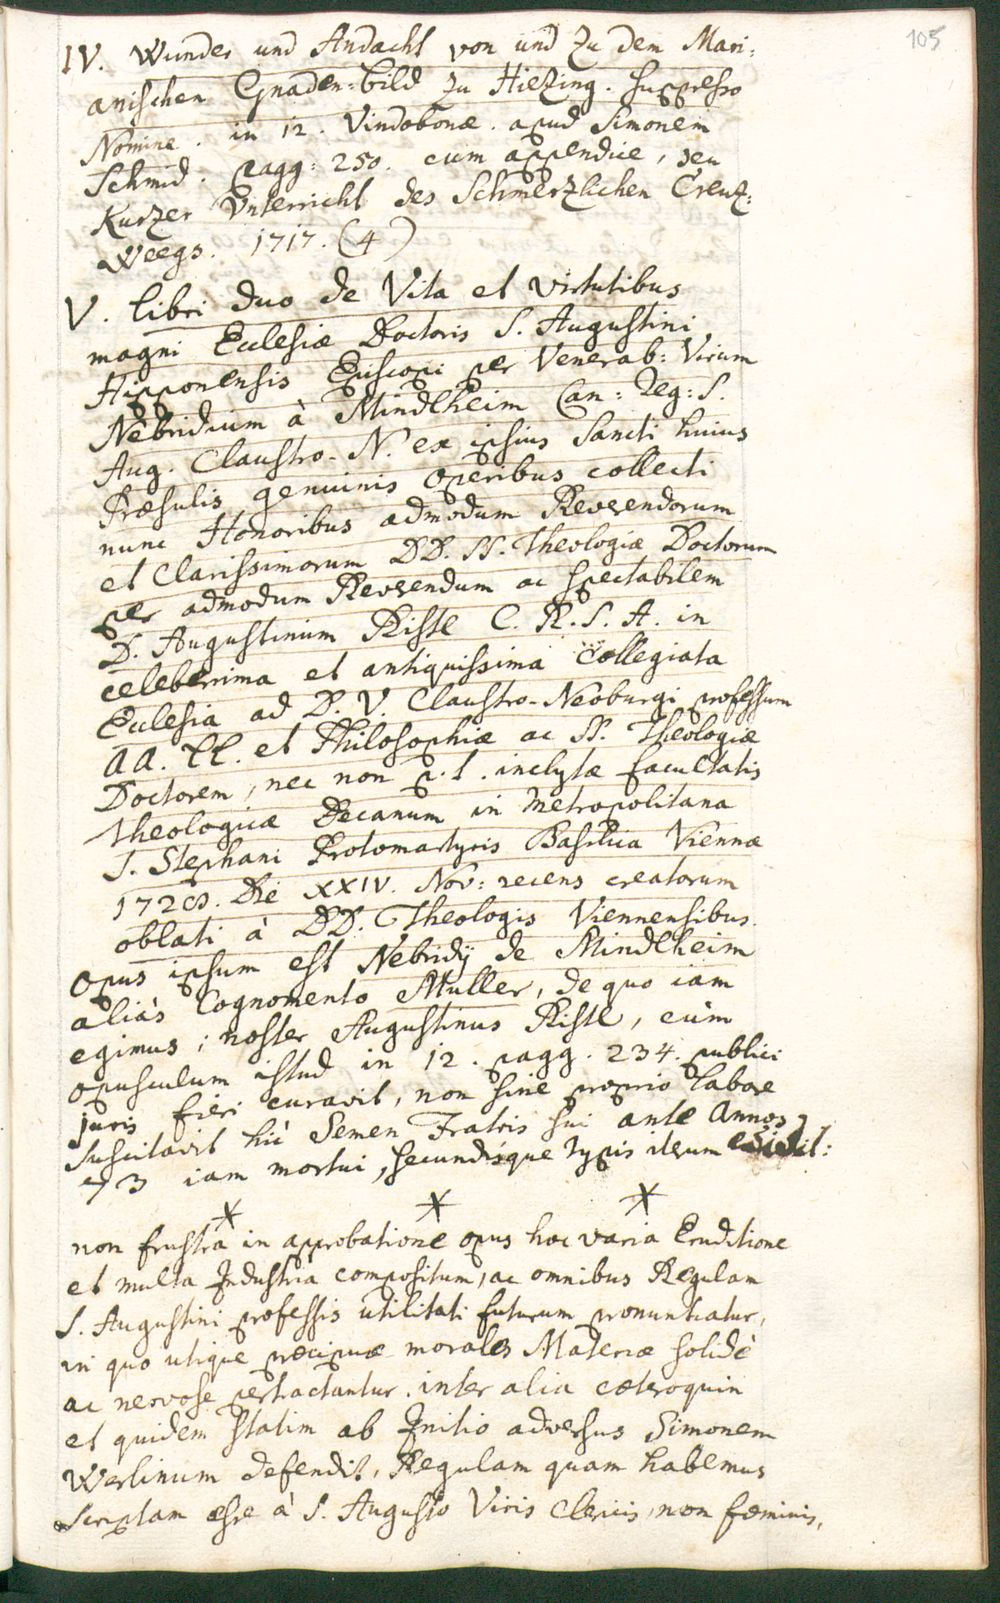 105
IV. Wunder und Andacht von und zu dem Mari:
anischen Gnaden-bild zu Hiezing. suppresso
Nomine. in 12. Vindobonæ. apud Simonem
Schmid. pagg: 250. cum appendice, seu
Kurzer Unterricht des Schmerzlichen Creuz:
Weegs. 1717. (4)
V. libri duo de Vita et virtutibus
magni Ecclesiæ Doctoris S. Augustini
Hipponensis Episcopi per Venerab: Virum
Nebridium à Mindlheim Can: Reg: S.
Aug. Claustro-N. ex ipsius Sancti huius
Præsulis genuinis operibus collecti
nunc Honoribus admodum Reverendorum
et Clarissimorum DD. SS. Theologiæ Doctorum
per admodum Reverendum ac spectabilem
D. Augustinum Ristl C. R. S. A. in
celeberrima et antiquissima Collegiata
Ecclesia ad B. V. Claustro-Neoburgi professum
AA. LL. et Philosophiæ ac SS. Theologiæ
Doctorem, nec non p. t. inclytæ facultatis
Theologicæ Decanum in Metropolitana
S. Stephani Protomartyris Basilica Viennæ
Die XXIV. Nov: recens creatorum
oblati à DD. Theologis Viennensibus.
Opus ipsum est Nebridij de Mindlheim
aliàs Cognomento Muller, de quo iam
egimus; noster Augustinus Ristl, cùm
opusculum istud in 12. pagg. 234. publici
juris fieri curavit, non sine proprio labore
suscitavit hìc Semen Fratris sui ante Annos
73 iam mortui, secundisque typis iterum edidit:
* * *
non frustrà in approbatione opus hoc varia Eruditione
et multa Industria compositum, ac omnibus Regulam
S. Augustini professis utilitati futurum pronuntiatur,
in quo utique præcipuæ morales Materiæ solidè
ac nervose pertractantur. inter alia cæteroquin
et quidem statim ab Initio adversus Simonem
Werlinum defendit, Regulam quam habemus
scriptam esse à S. Augusto Viris Clericis, non fœminis,